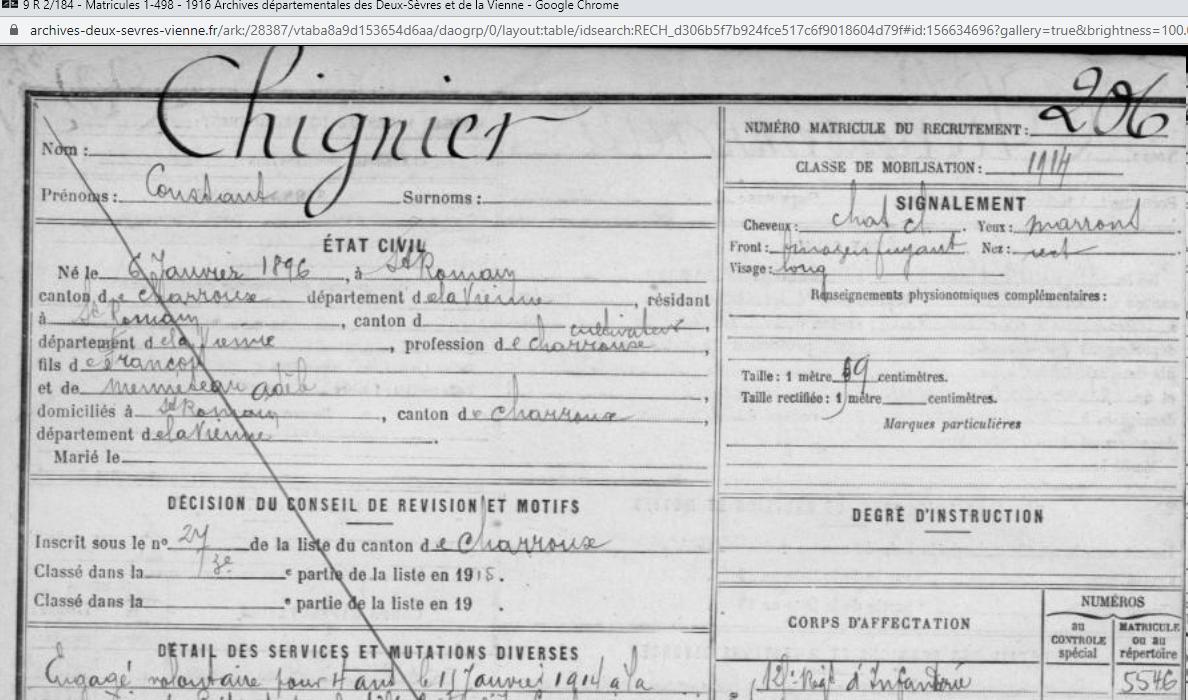 9 R 2/184 - Matricules 1-498 - 1916 Archives départementales des Deux-Sèvres et de la Vienne - Google Chrome
archives-deux-sevres-vienne.fr/ark:/28387/vtaba8a9d153654d6aa/daogrp/0/layout:table/idsearch:RECH_d306b5f7b924fce517c6f9018604d79f#id:156634696?gallery=true&brightness=100.0
Nom: Chignier
Prénoms: Constant Surnoms:
ÉTAT CIVIL
Né le 6 Janvier 1896, à St Romain
canton de Charroux département de la Vienne, résidant
à St Romain, canton d
département de la Vienne, profession de cultivateur Charroux,
fils de François
et de
domiciliés à St Romain, canton de Charroux,
département de la Vienne.
Marié le
DÉCISION DU CONSEIL DE REVISION ET MOTIFS
Inscrit sous le nº 27 de la liste du canton de Charroux
Classé dans la 3e e partie de la liste en 1915.
Classé dans la e partie de la liste en 19 .
DÉTAIL DES SERVICES ET MUTATIONS DIVERSES
Engagé volontaire pour 4 ans le 11 Janvier 1914 à la
NUMÉRO MATRICULE DU RECRUTEMENT: 206
CLASSE DE MOBILISATION: 1914
SIGNALEMENT
Cheveux: chat cl. Yeux: marrons
Front: fuyant Nez: rect
Visage: long
Renseignements physionomiques complémentaires:
Taille: 1 mètre 59 centimètres.
Taille rectifiée: 1 mètre centimètres.
Marques particulières
DEGRÉ D'INSTRUCTION
CORPS D'AFFECTATION
NUMÉROS
au CONTROLE spécial
MATRICULE ou au répertoire
12e Régt d'Infanterie 5546